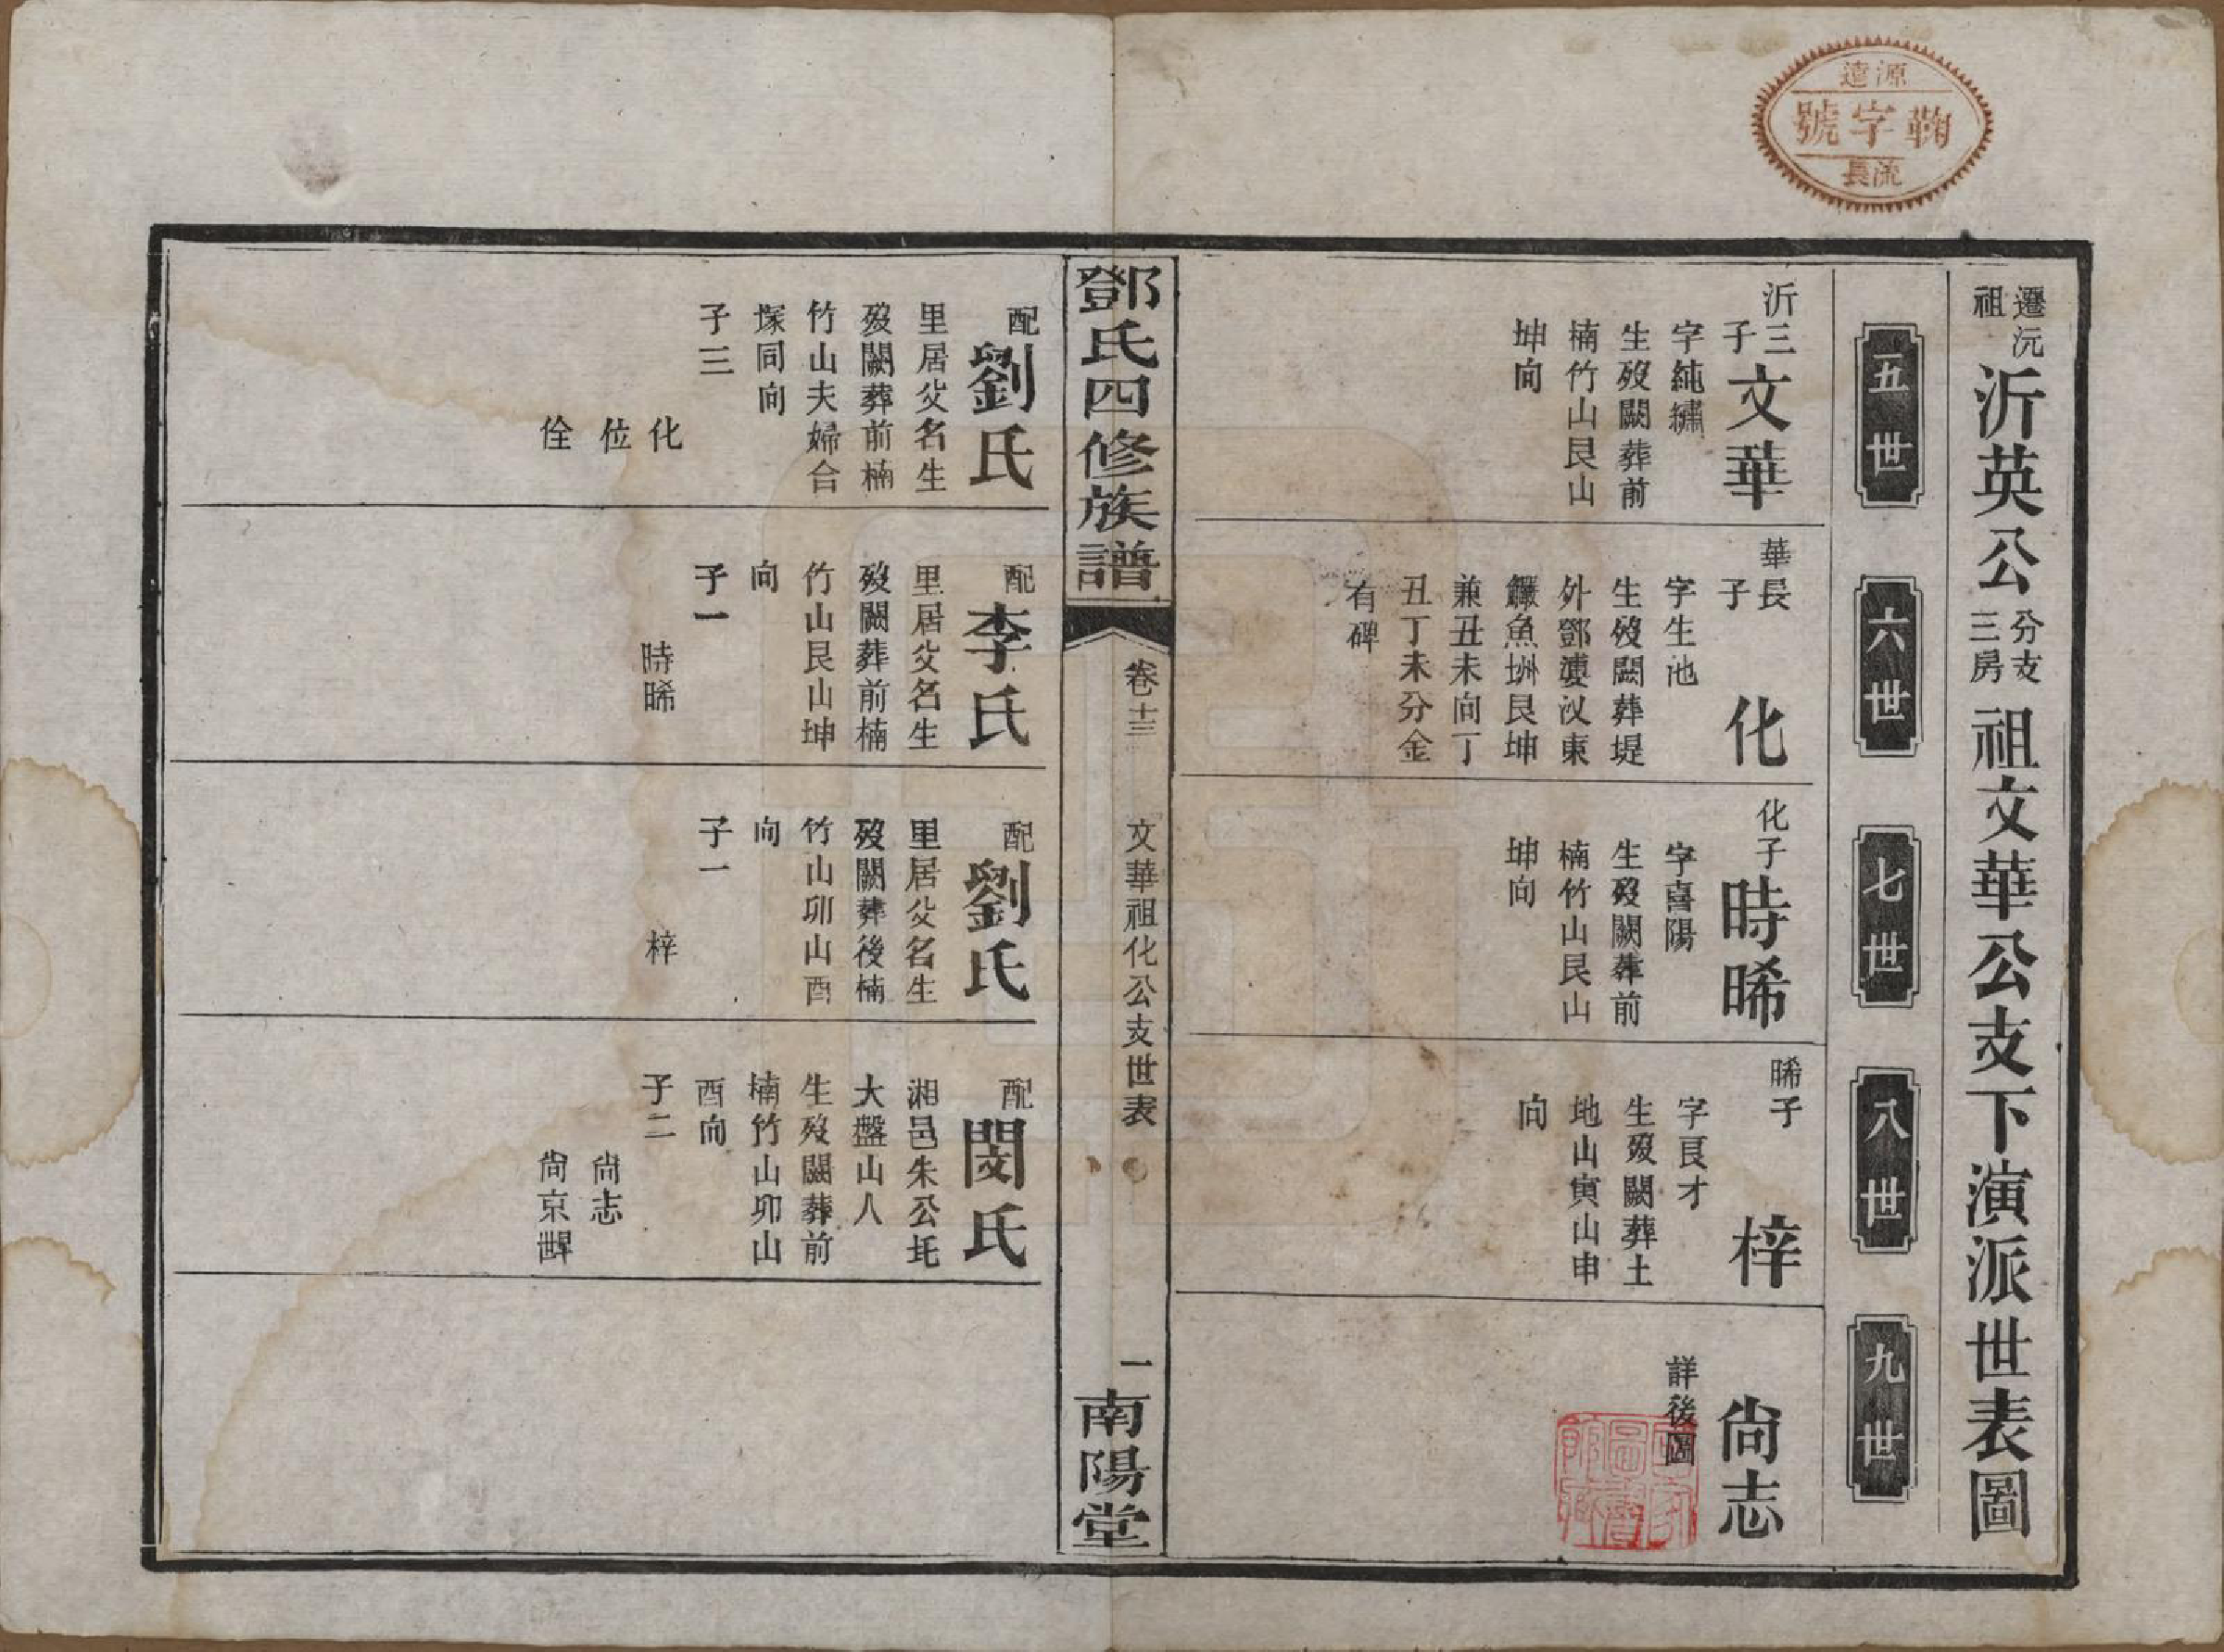 源遠
鞠字號
流長
遷沅祖沂英公分支三房祖文華公支下演派世表圖
五世
六世
七世
八世
九世
沂三子文華
字純繡
生歿闕葬前
楠竹山艮山
坤向
華長子化
字生池
生歿闕葬堤
外鄧婁汊東
鱖魚洲艮坤
兼丑未向丁
丑丁未分金
有碑
化子時晞
字喜陽
生歿闕葬前
楠竹山艮山
坤向
晞子梓
字良才
生歿闕葬土
地山寅山申
向
尙志
詳後圖
鄧氏四修族譜
卷十三
文華祖化公支世表
一
南陽堂
配劉氏
里居父名生
歿闕葬前楠
竹山夫婦合
塚同向
子三
化
位
佺
配李氏
里居父名生
歿闕葬前楠
竹山艮山坤
向
子一
時晞
配劉氏
里居父名生
歿闕葬後楠
竹山卯山酉
向
子一
梓
配閔氏
湘邑朱公圫
大盤山人
生歿闕葬前
楠竹山卯山
酉向
子二
尙志
尙京